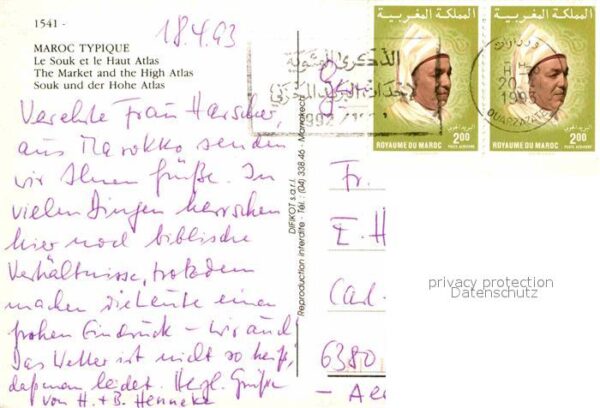 1541 -
18.4.93
MAROC TYPIQUE
Le Souk et le Haut Atlas
The Market and the High Atlas
Souk und der Hohe Atlas
Verehrte Frau
aus Marokko senden
wir Ihnen Grüße. In
vielen Dingen herrschen
hier noch biblische
Verhältnisse, trotzdem
machen die Leute einen
frohen Eindruck – wir auch!
Das Wetter ist nicht so heiß,
daß man leidet. Herzl. Grüße
von H. + B. Henneke
DIFIKOT s.a.r.l.
Reproduction interdite - Tél.: (04) 338.46 - Marrakech
الذكرى المئوية
لإحداث البريد المخزني
1992
المملكة المغربية
البريد الجوي
2.00
ROYAUME DU MAROC
POSTE AERIENNE
المملكة المغربية
البريد الجوي
2.00
ROYAUME DU MAROC
POSTE AERIENNE
20
1993
OUARZAZATE
Fr.
E. H
Carl-
6380
privacy protection
Datenschutz